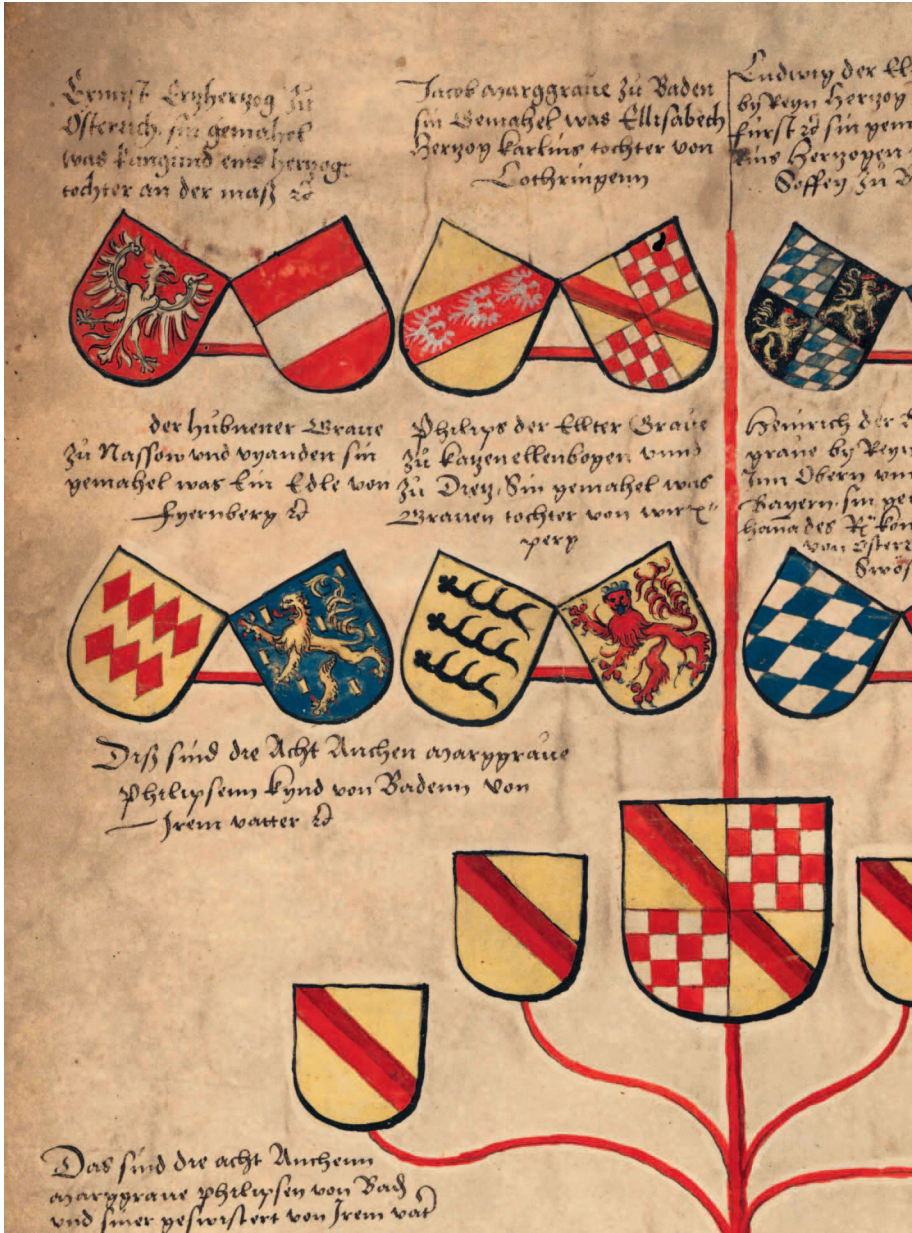 Ernnst Erzherzog zu
Österrich sin gemahel
was kungund eins herzogen
tochter an der maß
Jacob Marggraue zu Baden
sin Gemahel was Ellisabech
Herzog karlius tochter von
Lothringenn
Ludwig der Ell
by Reyn Herzog
fürst sin gem
eins Herzogen
Soffey zu B
der hübnener Graue
zu Nassow vnd vyanden sin
gemahel was Ein Edle von
Eyernberg
Philips der Ellter Graue
zu katzenellenbogen vnnd
zu Dietz, Sin gemahel was
Grauen tochter von wirt
perg
Heinrich der
graue by Reyn
Inn Obern vnn
Bayern. sin ge
hana des kon
von Osterr
Swös
Diß sind die Acht Anchen Marggraue
Philipsenn kynd von Badenn von
Irem vatter
Das sind die acht Anchenn
Marggraue philipsen von Bad
vnd siner geswistert von Irem vat